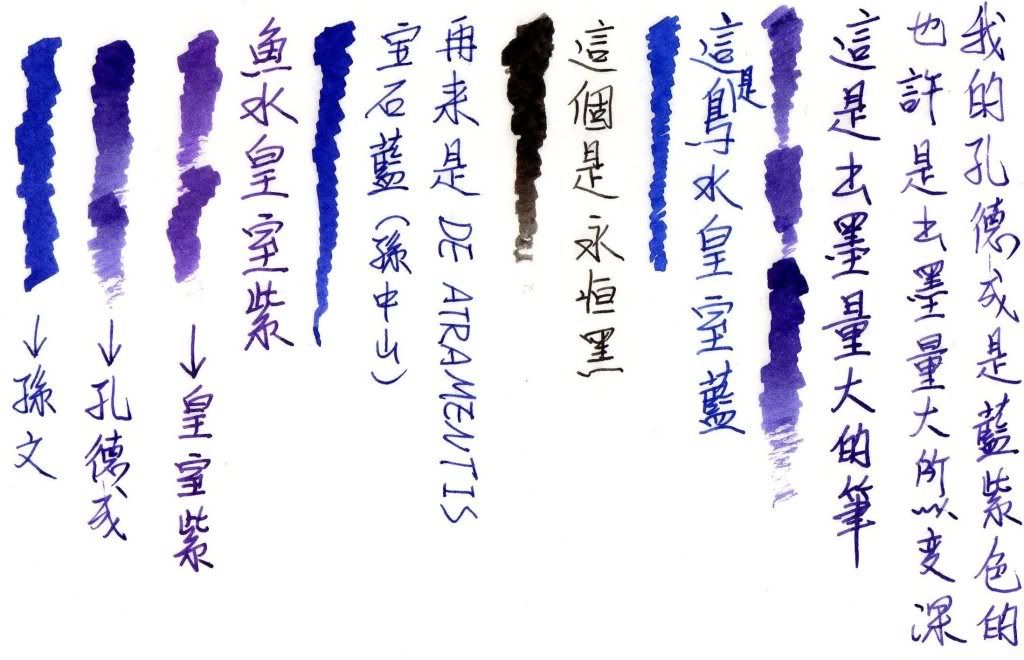 我的孔德成是藍紫色的
也許是出墨量大所以変深
這是出墨量大的筆
這是鳥水皇室藍
這個是永恒黑
再来是 DE ATRAMENTIS
宝石藍(孫中山)
魚水皇室紫
↓皇室紫
↓孔德成
↓孫文